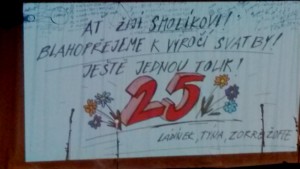 AŤ ŽIJÍ SMOLÍKOVI!
BLAHOPŘEJEME K VÝROČÍ SVATBY!
JEŠTĚ JEDNOU TOLIK!
25
TÝNA, ZORRE, ŽOFIE